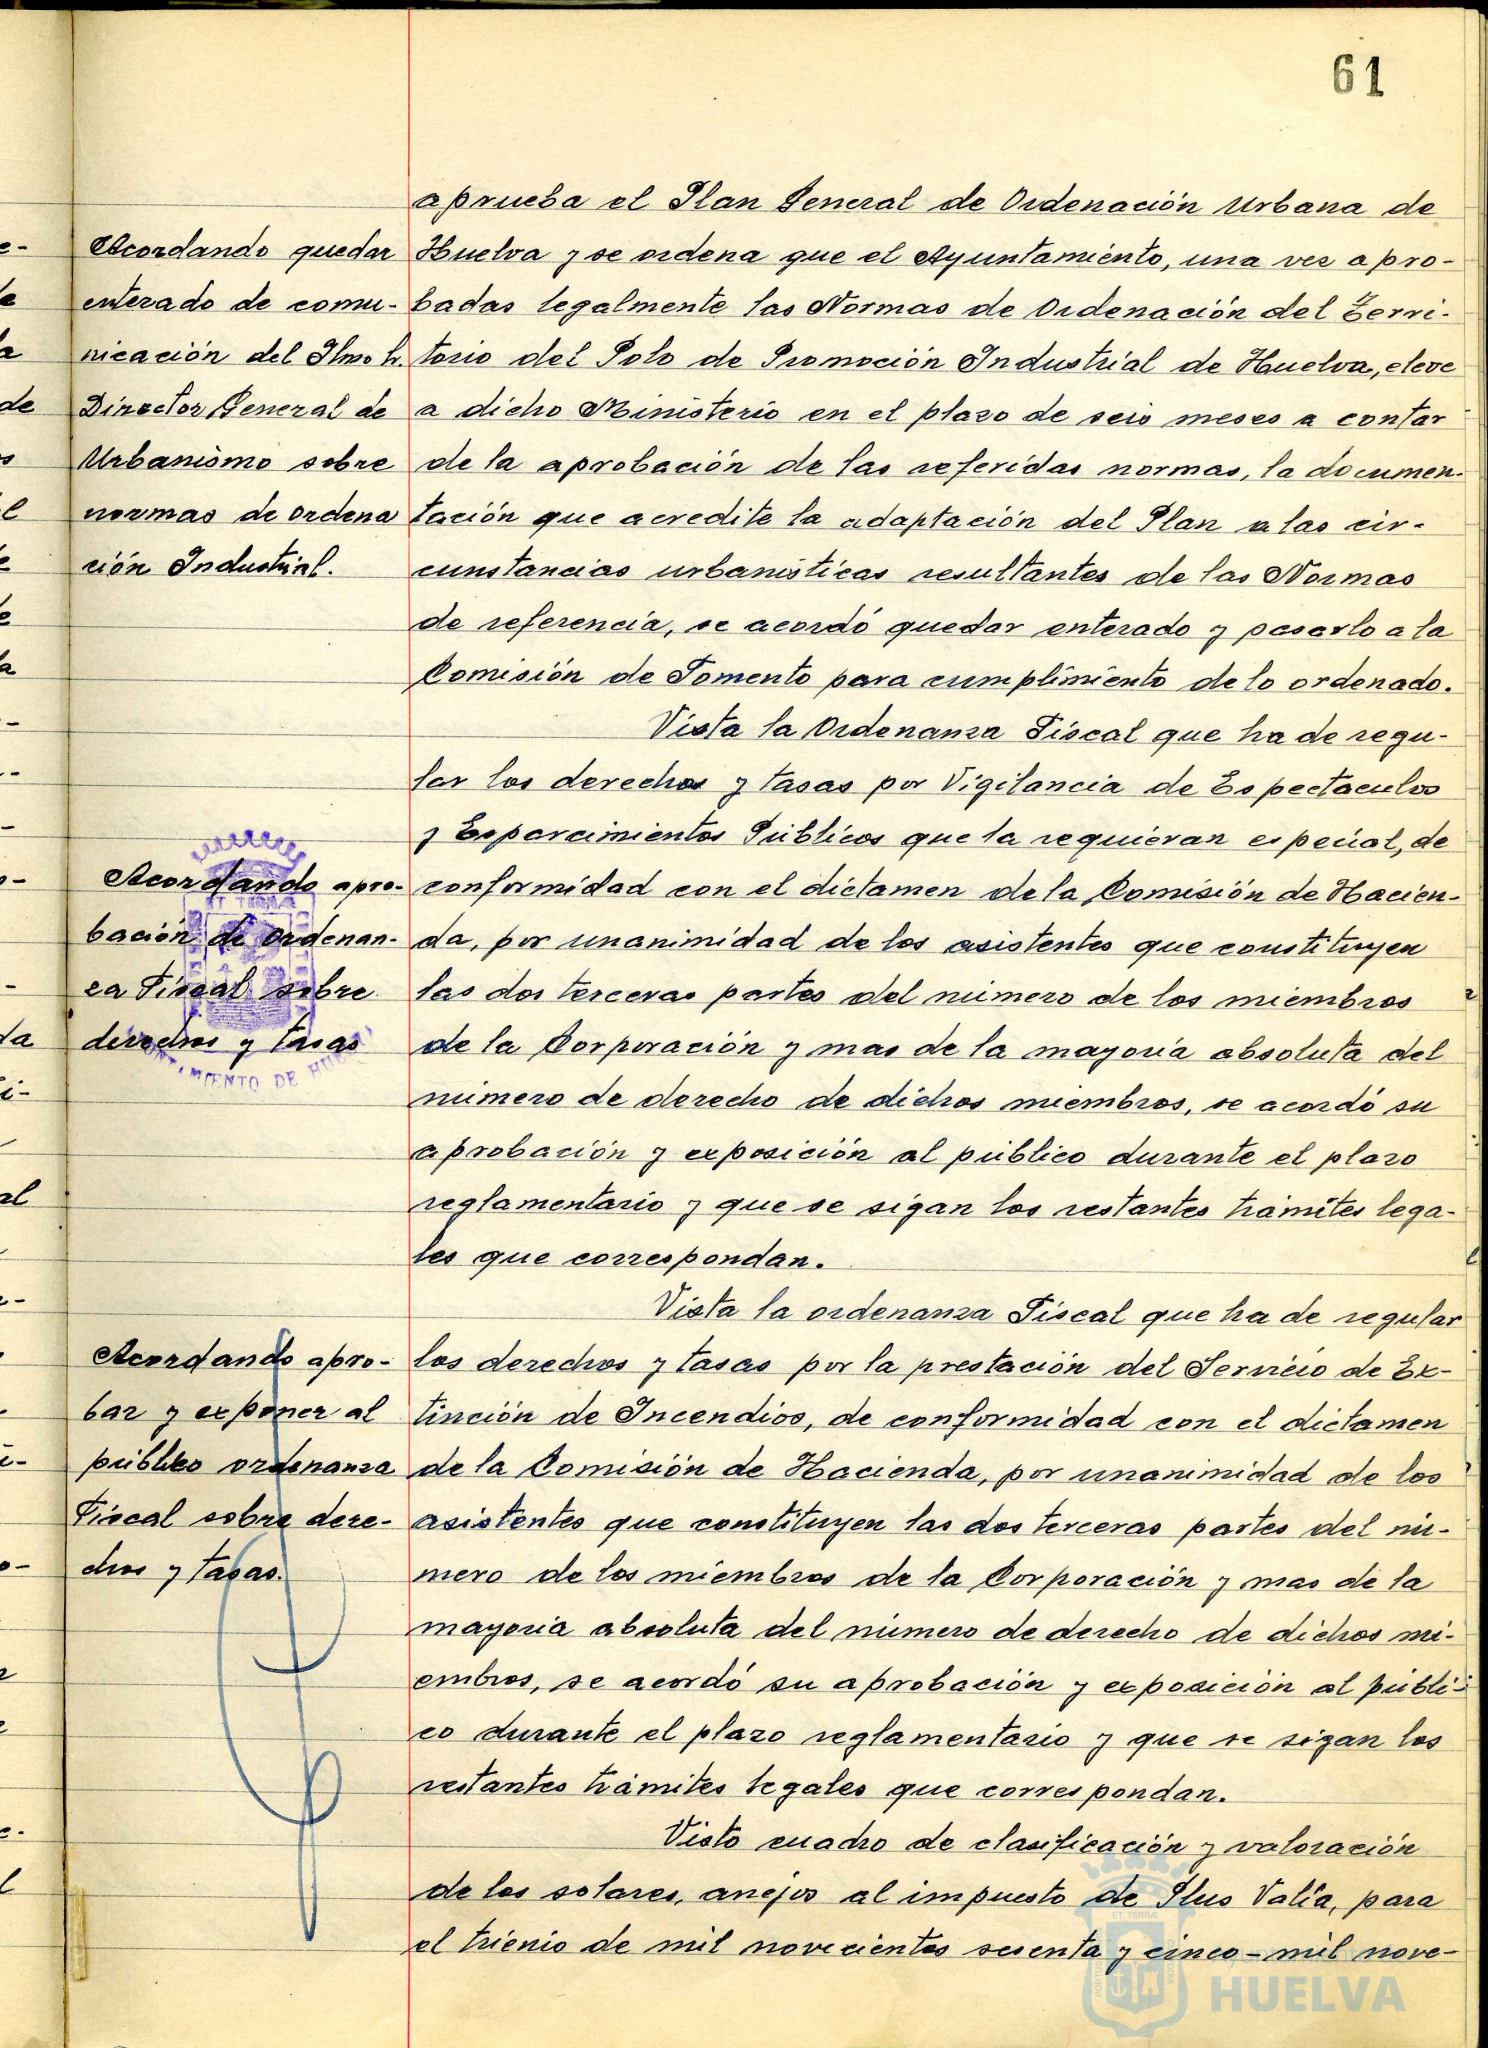 61
aprueba el Plan General de Ordenación Urbana de
Huelva y se ordena que el Ayuntamiento, una vez apro-
badas legalmente las Normas de Ordenación del Terri-
torio del Polo de Promoción Industrial de Huelva, eleve
a dicho Ministerio en el plazo de seis meses a contar
de la aprobación de las referidas normas, la documen-
tación que acredite la adaptación del Plan a las cir-
cunstancias urbanísticas resultantes de las Normas
de referencia, se acordó quedar enterado y pasarlo a la
Comisión de Fomento para cumplimiento de lo ordenado.
Acordando quedar
enterado de comu-
nicación del Ilmo Sr.
Director General de
Urbanismo sobre
normas de ordena
ción Industrial.
Vista la Ordenanza Fiscal que ha de regu-
lar los derechos y tasas por Vigilancia de Espectaculos
y Esparcimientos Públicos que la requieran especial, de
conformidad con el dictamen de la Comisión de Hacien-
da, por unanimidad de los asistentes que constituyen
las dos terceras partes del número de los miembros
de la Corporación y mas de la mayoría absoluta del
número de derecho de dichos miembros, se acordó su
aprobación y exposición al público durante el plazo
reglamentario y que se sigan los restantes trámites lega-
les que correspondan.
Acordando apro-
bación de Ordenan-
za Fiscal sobre
derechos y tasas
ET TERRA
MIENTO DE HUELVA
Vista la ordenanza Fiscal que ha de regular
los derechos y tasas por la prestación del Servicio de Ex-
tinción de Incendios, de conformidad con el dictamen
de la Comisión de Hacienda, por unanimidad de los
asistentes que constituyen las dos terceras partes del nú-
mero de los miembros de la Corporación y mas de la
mayoría absoluta del número de derecho de dichos mi-
embros, se acordó su aprobación y exposición al públi-
co durante el plazo reglamentario y que se sigan los
restantes trámites legales que correspondan.
Acordando apro-
bar y exponer al
público ordenanza
Fiscal sobre dere-
chos y tasas.
Visto cuadro de clasificación y valoración
de los solares, anejos al impuesto de Plus Valía, para
el trienio de mil novecientos sesenta y cinco-mil nove-
HUELVA